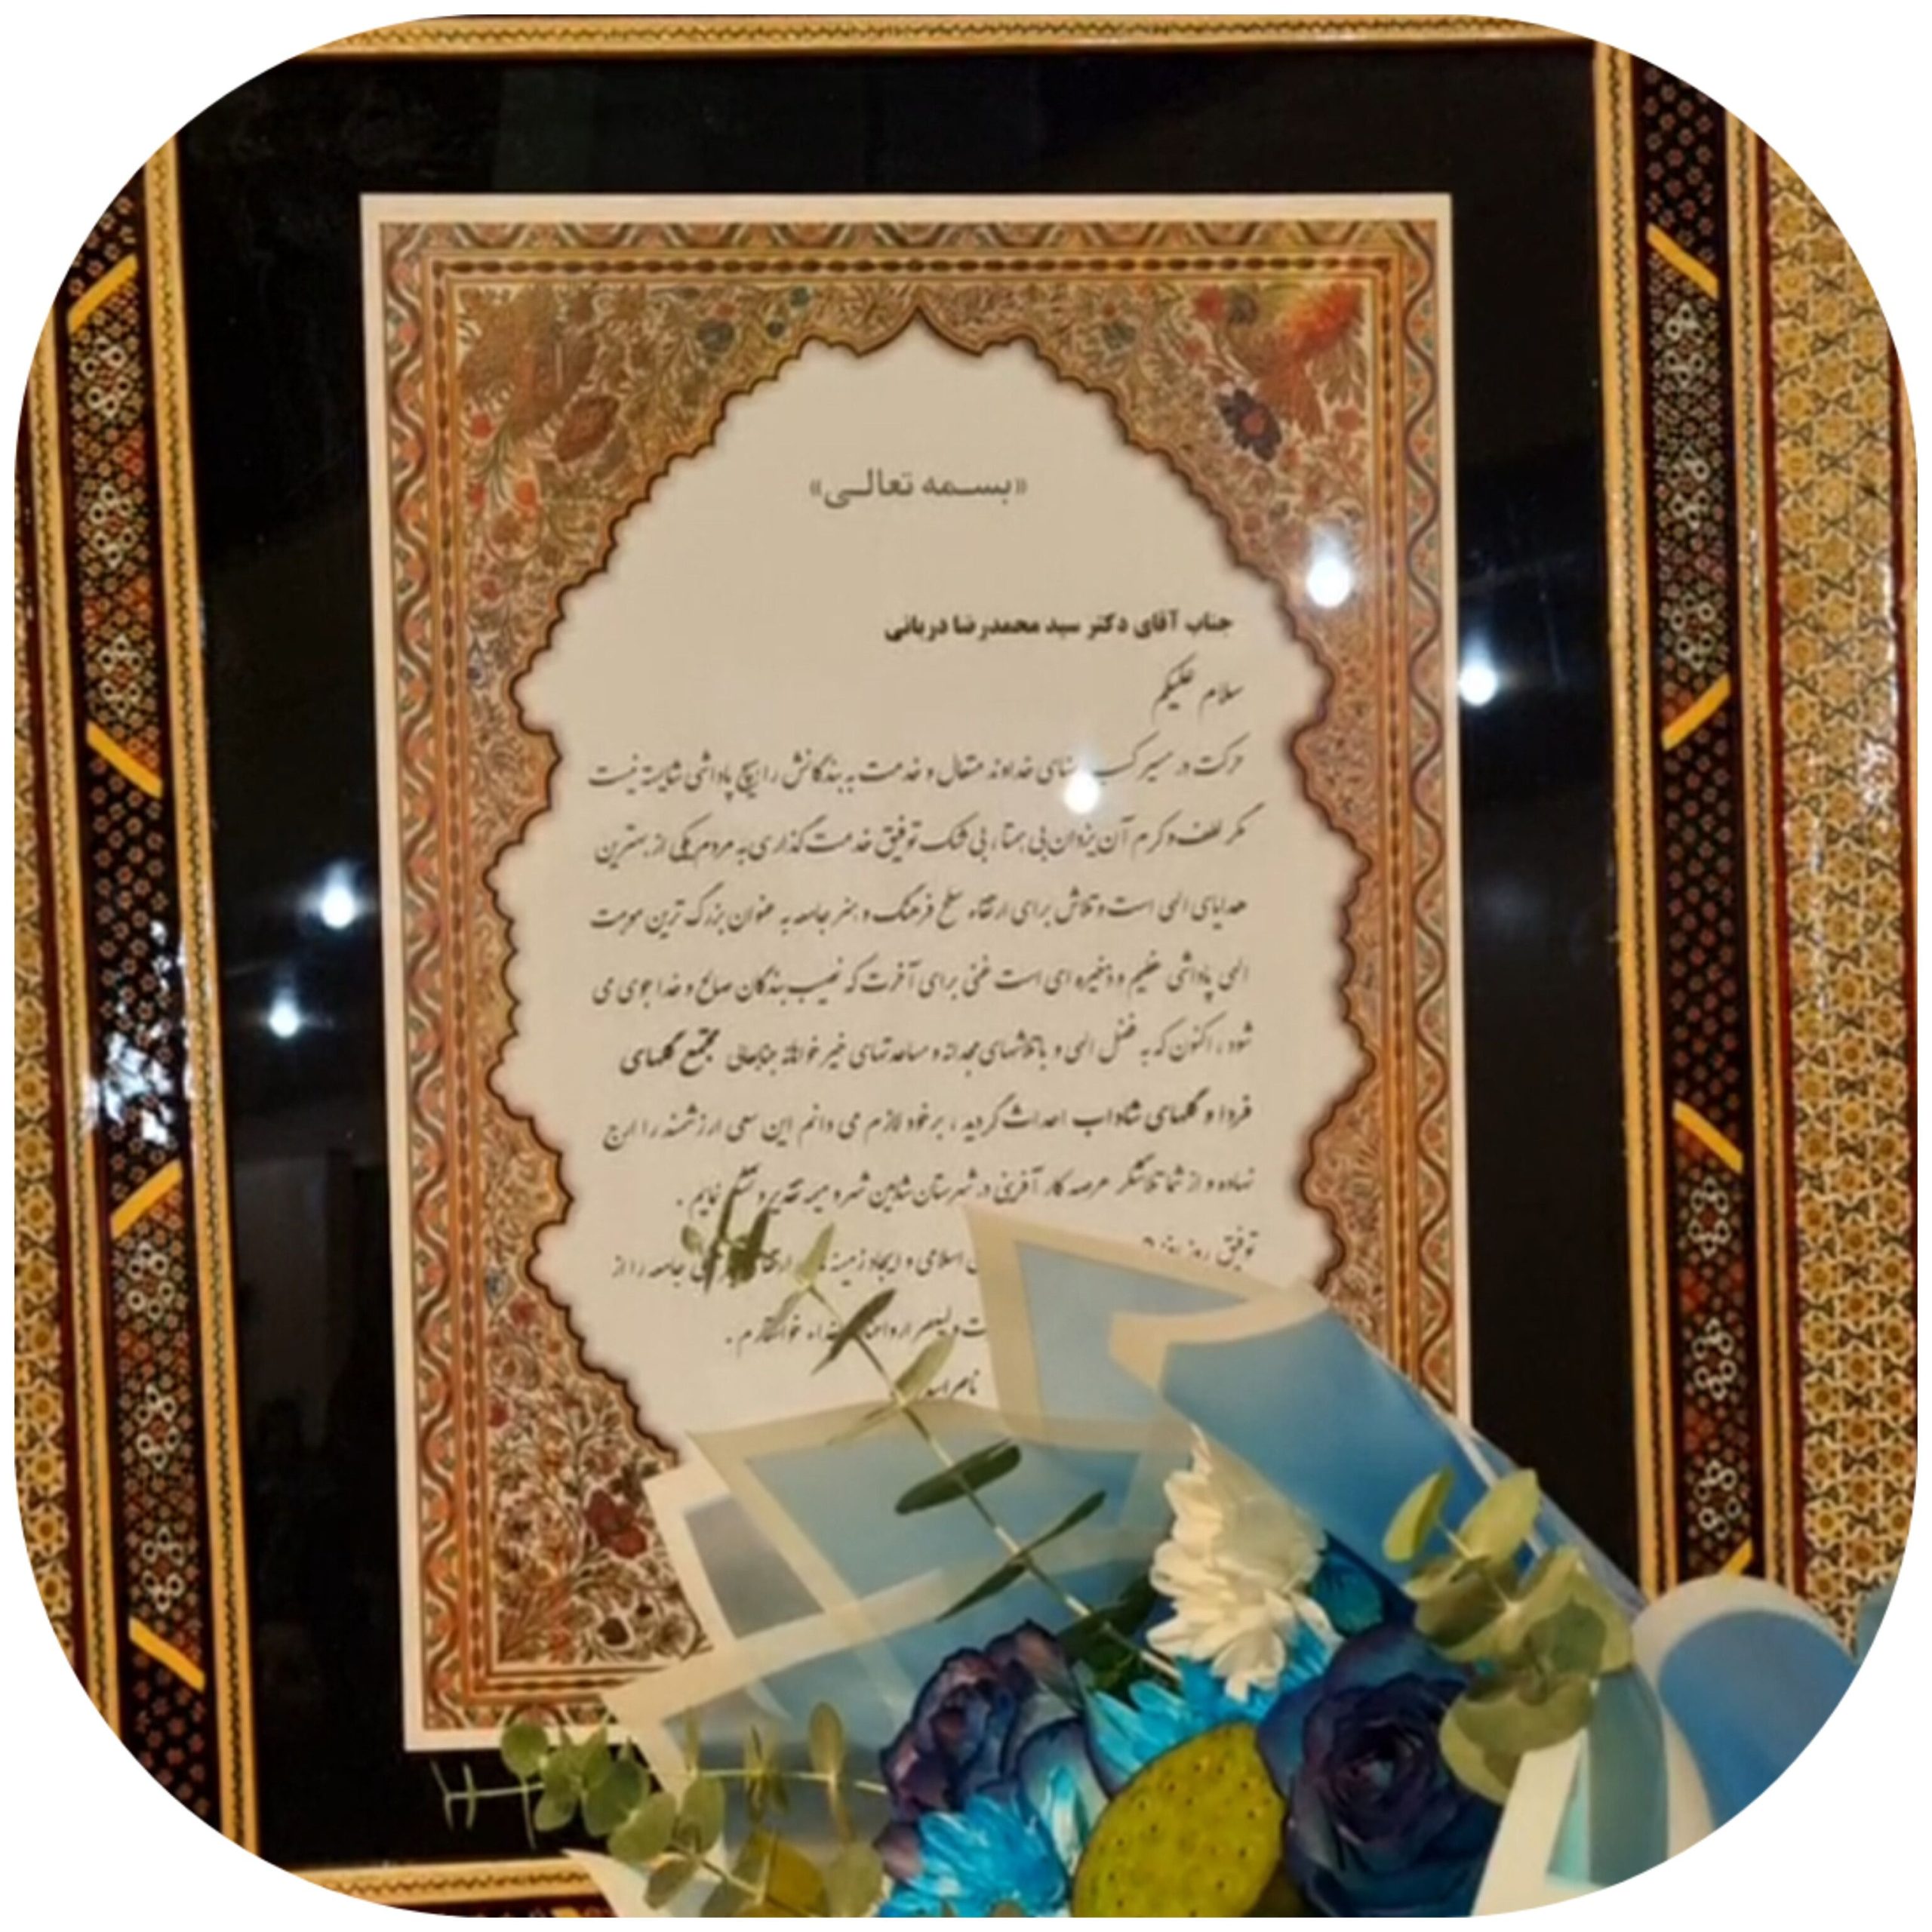 «بسمه تعالی»
جناب آقای دکتر سید محمدرضا دربانی
سلام علیکم
حرکت در مسیر کسب رضای خداوند متعال و خدمت به بندگانش را هیچ پاداشی شایسته نیست
مگر لطف و کرم آن یزدان بی همتا، بی شک توفیق خدمت گذاری به مردم یکی از بهترین
هدایای الهی است و تلاش برای ارتقاء سطح فرهنگ و هنر جامعه به عنوان بزرگ ترین موهبت
الهی پاداشی عظیم و ذخیره ای است غنی برای آخرت که نصیب بندگان صالح و خداجوی می
شود، اکنون که به فضل الهی و با تلاشهای مجدانه و مساعدتهای خیرخواهانه جنابعالی مجتمع گلهای
فردا و گلهای شاداب احداث گردید، برخود لازم می دانم این سعی ارزشمند را ارج
نهاده و از شما تلاشگر عرصه کار آفرینی در شهرستان شاهین شهر و میمه تقدیر و تشکر نمایم.
توفیق روز اسلامی و ایجاد زمینه جامعه را از
خواستارم.